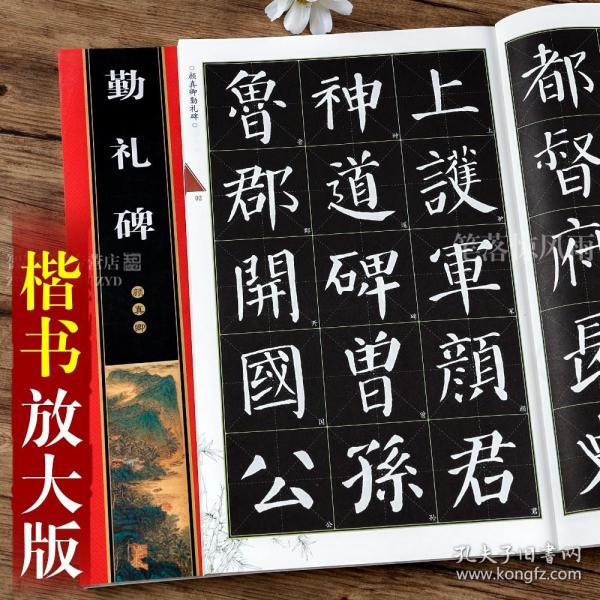 勤礼碑
颜真卿
楷书放大版
颜真卿勤礼碑
03
上護軍顔君
神道碑曽孫
魯郡開國公
都督府長
笔落惊风雨
孔夫子旧书网
www.kongfz.com